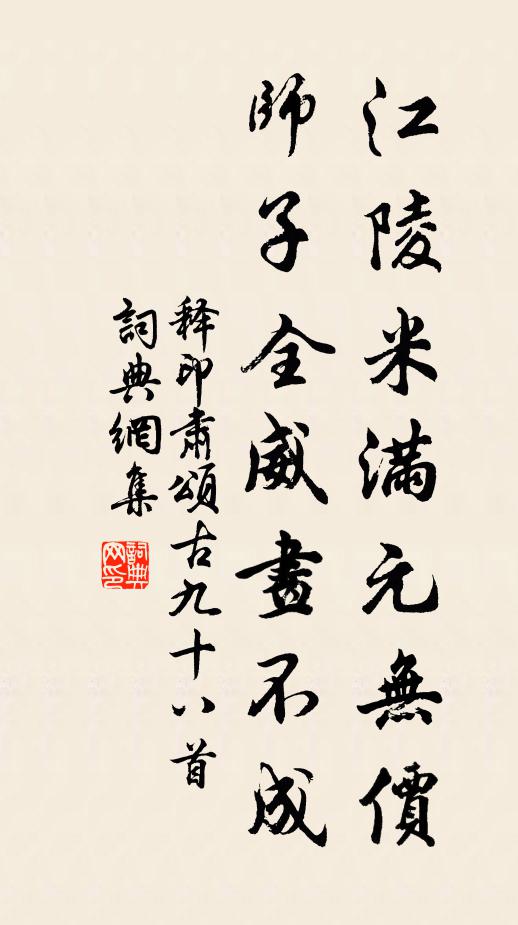 江陵米满元無價
師子全威畫不成
释印肅頌古九十八首
詞典網集
詞典网印